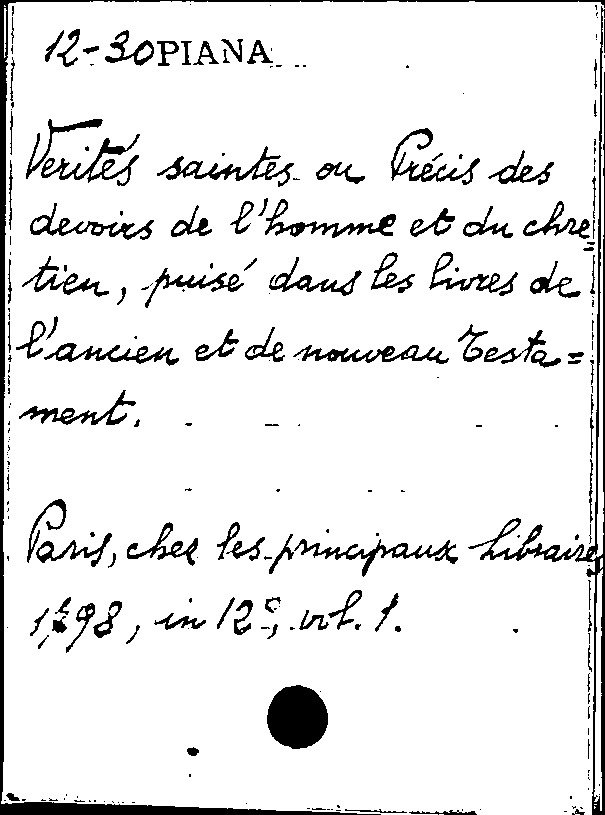 12-30PIANA
Verités saintes ou Précis des
devoirs de l'homme et du chre=
tien, puisé dans les livres de
l'ancien et de nouveau Testa=
ment.
Paris, chez les principaux Libraires
1798, in 12º, vol. 1.